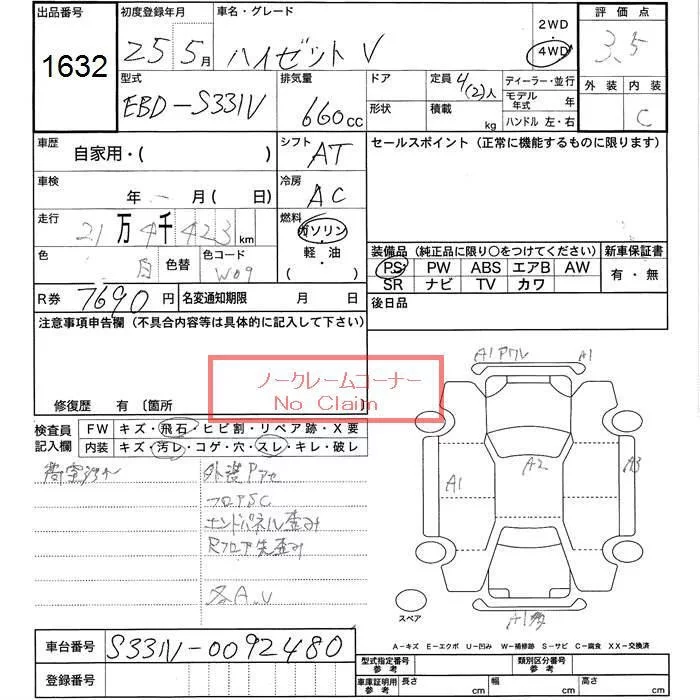 出品番号 初度登録年月 車名・グレード 評価点
1632
25 年 5月 ハイゼット V 2WD 4WD 3.5
型式 排気量 ドア 定員 4(2)人 ディーラー・並行 外装 内装
EBD-S331V 660cc 形状 積載 kg モデル年式 年 C
ハンドル 左・右
車歴 自家用・( ) シフト AT セールスポイント (正常に機能するものに限ります)
車検 年 - 月 ( 日) 冷房 AC
走行 21万4千423km 燃料 ガソリン
軽・油
・( )
色 白 色替 色コード W09
装備品 (純正品に限り○をつけてください) 新車保証書
PS PW ABS エアB AW 有・無
SR ナビ TV カワ
R券 7690円 名変通知期限 月 日 後日品
注意事項申告欄 (不具合内容等は具体的に記入して下さい)
ノークレームコーナー
No Claim
修復歴 有 〔箇所 〕
検査員記入欄 FW キズ・飛石・ヒビ割・リペア跡・X要
内装 キズ・汚レ・コゲ・穴・スレ・キレ・破レ
荷室汚れ 外装Pアセ
フロアSC
エンドパネル歪み
Rフロア先歪み
各A.U
A1 A1
A1 A2 A3
A1
スペア
A-キズ E-エクボ U-凹み W-補修跡 S-サビ C-腐食 XX-交換済
車台番号 S331V-0092480
登録番号
型式指定番号 参考 類別区分番号 参考
車庫証明用 参考 長さ cm 幅 cm 高さ cm